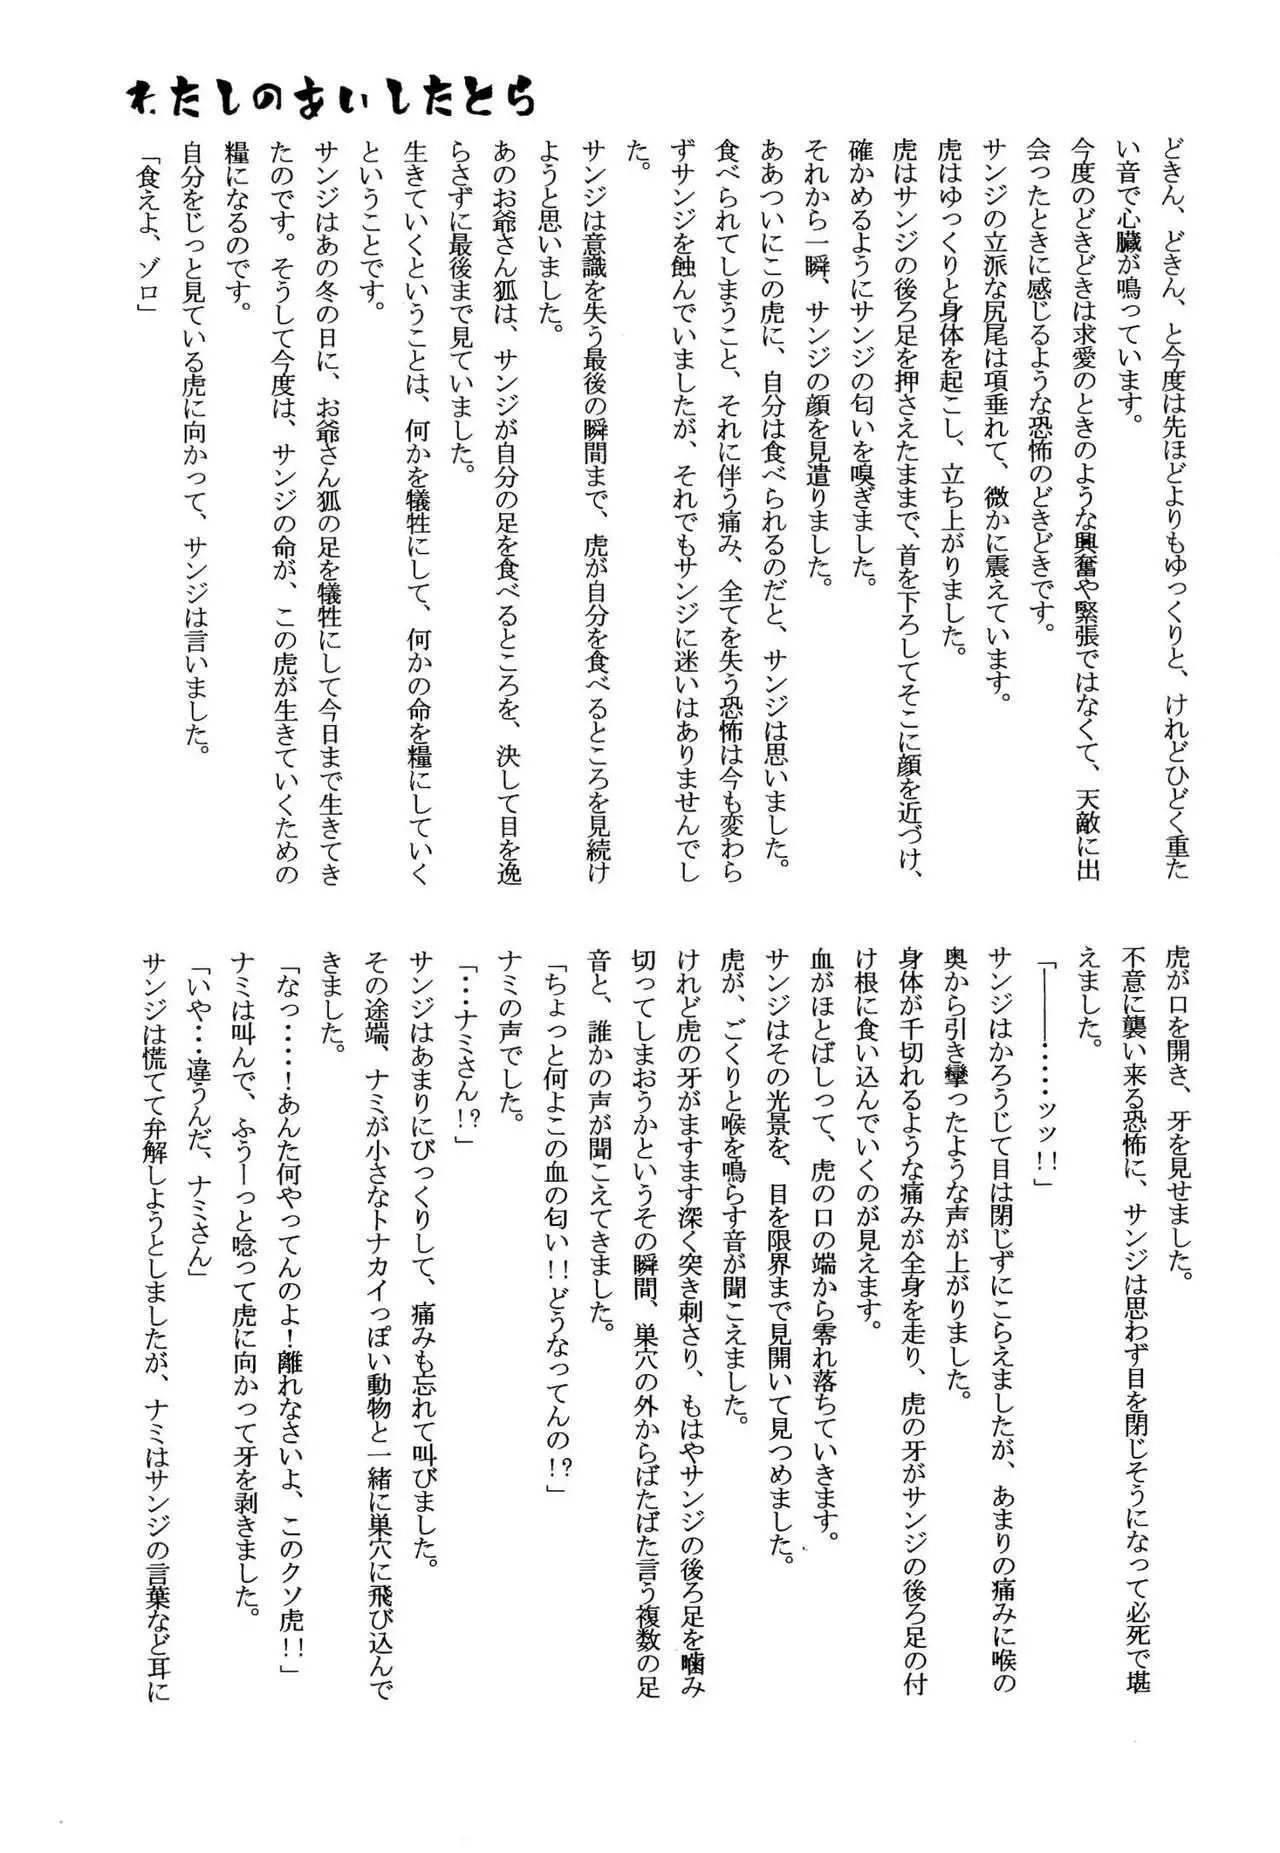 わたしのあいしたとら
どきん、どきん、と今度は先ほどよりもゆっくりと、けれどひどく重た
い音で心臓が鳴っています。
今度のどきどきは求愛のときのような興奮や緊張ではなくて、天敵に出
会ったときに感じるような恐怖のどきどきです。
サンジの立派な尻尾は項垂れて、微かに震えています。
虎はゆっくりと身体を起こし、立ち上がりました。
虎はサンジの後ろ足を押さえたままで、首を下ろしてそこに顔を近づけ、
確かめるようにサンジの匂いを嗅ぎました。
それから一瞬、サンジの顔を見遣りました。
ああついにこの虎に、自分は食べられるのだと、サンジは思いました。
食べられてしまうこと、それに伴う痛み、全てを失う恐怖は今も変わら
ずサンジを蝕んでいましたが、それでもサンジに迷いはありませんでし
た。
サンジは意識を失う最後の瞬間まで、虎が自分を食べるところを見続け
ようと思いました。
あのお爺さん狐は、サンジが自分の足を食べるところを、決して目を逸
らさずに最後まで見ていました。
生きていくということは、何かを犠牲にして、何かの命を糧にしていく
ということです。
サンジはあの冬の日に、お爺さん狐の足を犠牲にして今日まで生きてき
たのです。そうして今度は、サンジの命が、この虎が生きていくための
糧になるのです。
自分をじっと見ている虎に向かって、サンジは言いました。
「食えよ、ゾロ」
虎が口を開き、牙を見せました。
不意に襲い来る恐怖に、サンジは思わず目を閉じそうになって必死で堪
えました。
「――・・・・・ッッ!!」
サンジはかろうじて目は閉じずにこらえましたが、あまりの痛みに喉の
奥から引き攣ったような声が上がりました。
身体が千切れるような痛みが全身を走り、虎の牙がサンジの後ろ足の付
け根に食い込んでいくのが見えます。
血がほとばしって、虎の口の端から零れ落ちていきます。
サンジはその光景を、目を限界まで見開いて見つめました。
虎が、ごくりと喉を鳴らす音が聞こえました。
けれど虎の牙がますます深く突き刺さり、もはやサンジの後ろ足を噛み
切ってしまおうかというその瞬間、巣穴の外からばたばた言う複数の足
音と、誰かの声が聞こえてきました。
「ちょっと何よこの血の匂い!!どうなってんの!?」
ナミの声でした。
「・・・ナミさん!?」
サンジはあまりにびっくりして、痛みも忘れて叫びました。
その途端、ナミが小さなトナカイっぽい動物と一緒に巣穴に飛び込んで
きました。
「なっ・・・・!あんた何やってんのよ!離れなさいよ、このクソ虎!!」
ナミは叫んで、ふうーっと唸って虎に向かって牙を剥きました。
「いや・・・違うんだ、ナミさん」
サンジは慌てて弁解しようとしましたが、ナミはサンジの言葉など耳に